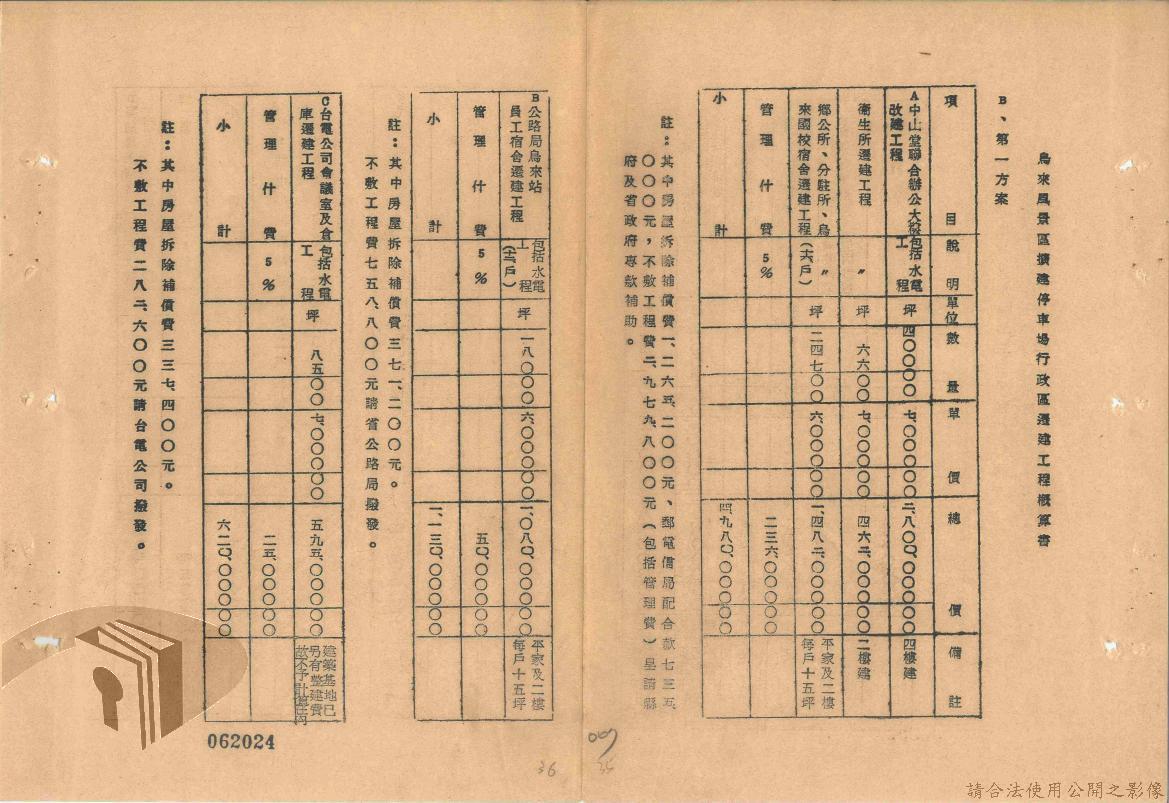 烏來風景區擴建停車場行政區遷建工程概算書
B、第一方案
項目 說明 單位 數量 單價 總價 備註
A中山堂聯合辦公大 改建工程 包括水電工程 坪 四〇〇〇〇 七、〇〇〇〇〇 二、八〇〇、〇〇〇〇〇 四樓建
衛生所遷建工程 〃 坪 六六〇〇 七、〇〇〇〇〇 四六二、〇〇〇〇〇 二樓建
鄉公所、分駐所、烏來國校宿舍遷建工程 〃 坪 二四七〇〇 六、〇〇〇〇〇 一、四八二、〇〇〇〇〇 平家及二樓每戶十五坪
管理什費 5% 二三六、〇〇〇〇〇
小計 四、九八〇、〇〇〇〇〇
註：其中房屋拆除補償費一、二六五、二〇〇元、郵電信局配合款七三五、
〇〇〇元，不敷工程費二、九七九、八〇〇元（包括管理費）呈請縣
府及省政府專款補助。
B公路局烏來站員工宿舍遷建工程 包括水電工程 坪 一八〇〇〇 六、〇〇〇〇〇 一、〇八〇、〇〇〇〇〇 平家及二樓每戶十五坪
管理什費 5% 五〇、〇〇〇〇〇
小計 一、一三〇、〇〇〇〇〇
註：其中房屋拆除補償費三七一、二〇〇元。
不敷工程費七五八、八〇〇元請省公路局撥發。
C台電公司會議室及倉庫遷建工程 包括水電工程 坪 八五〇〇 七、〇〇〇〇〇 五九五、〇〇〇〇〇 建築基地已另有整建費故不予計算在內
管理什費 5% 二五、〇〇〇〇〇
小計 六二〇、〇〇〇〇〇
註：其中房屋拆除補償費三三七、四〇〇元。
不敷工程費二八二、六〇〇元請台電公司撥發。
062024
36
35
請合法使用公開之影像